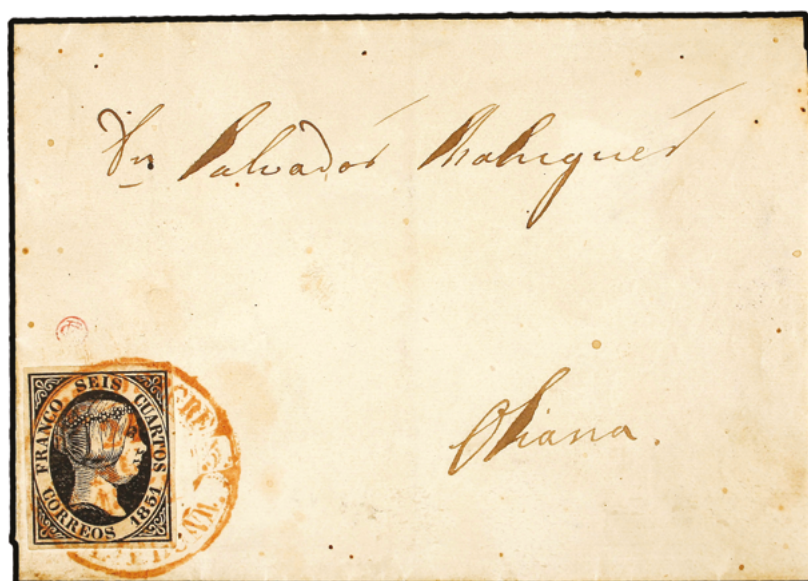 Dn Salvador
Oliana.
FRANCO SEIS CUARTOS
CORREOS 1851